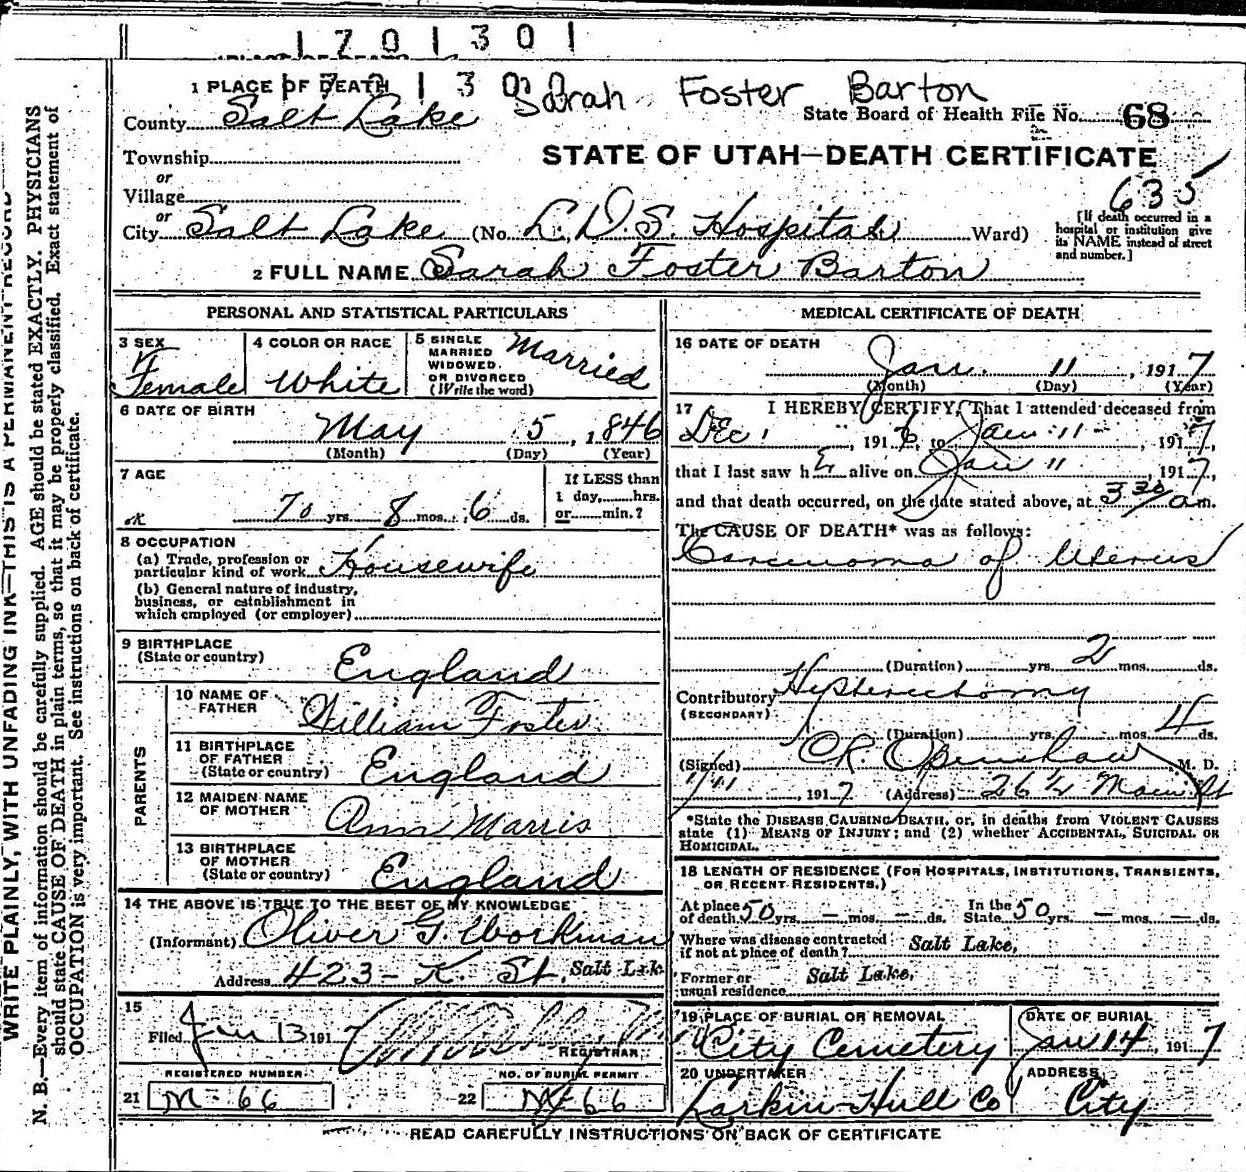 1701301
1 PLACE OF DEATH Sarah Foster Barton
County Salt Lake State Board of Health File No. 68
Township
or
Village
or
STATE OF UTAH—DEATH CERTIFICATE
635
City Salt Lake (No. L.D.S. Hospital Ward)
[If death occurred in a
hospital or institution give
its NAME instead of street
and number.]
2 FULL NAME Sarah Foster Barton
PERSONAL AND STATISTICAL PARTICULARS
3 SEX Female
4 COLOR OR RACE White
5 SINGLE
MARRIED
WIDOWED.
OR DIVORCED
(Write the word) Married
6 DATE OF BIRTH
May 5, 1846
(Month) (Day) (Year)
7 AGE
70 yrs. 8 mos. 6 ds.
If LESS than
1 day,......hrs.
or......min.?
8 OCCUPATION
(a) Trade, profession or
particular kind of work Housewife
(b) General nature of industry,
business, or establishment in
which employed (or employer)
9 BIRTHPLACE
(State or country) England
PARENTS
10 NAME OF
FATHER William Foster
11 BIRTHPLACE
OF FATHER
(State or country) England
12 MAIDEN NAME
OF MOTHER Ann Marris
13 BIRTHPLACE
OF MOTHER
(State or country) England
14 THE ABOVE IS TRUE TO THE BEST OF MY KNOWLEDGE
(Informant) Oliver G. Workman
Address 423 - K. St. Salt Lake
15
Filed Jan 13 191
REGISTRAR
REGISTERED NUMBER
21 M-66
NO. OF BURIAL PERMIT
22 M-66
MEDICAL CERTIFICATE OF DEATH
16 DATE OF DEATH
Jan. 11, 1917
(Month) (Day) (Year)
17 I HEREBY CERTIFY, That I attended deceased from
Dec, 1916, to Jan 11 - 1917,
that I last saw h alive on Jan 11, 1917,
and that death occurred, on the date stated above, at 3 30/am.
The CAUSE OF DEATH* was as follows:
Carcinoma of Uterus
(Duration) yrs. 2 mos. ds.
Contributory Hysterectomy
(SECONDARY)
(Duration) yrs. mos. 4 ds.
(Signed) C.R. Openshaw M. D.
1/11, 1917 (Address) 26 1/2 Main St
*State the DISEASE CAUSING DEATH, or, in deaths from VIOLENT CAUSES
state (1) MEANS OF INJURY; and (2) whether ACCIDENTAL, SUICIDAL OR
HOMICIDAL.
18 LENGTH OF RESIDENCE (FOR HOSPITALS, INSTITUTIONS, TRANSIENTS,
OR RECENT RESIDENTS.)
At place
of death 50 yrs. - mos. - ds.
In the
State 50 yrs. - mos. - ds.
Where was disease contracted
if not at place of death? Salt Lake,
Former or
usual residence Salt Lake,
19 PLACE OF BURIAL OR REMOVAL
City Cemetery
DATE OF BURIAL
Jan 14, 1917
20 UNDERTAKER
Larkin-Hull Co
ADDRESS
City
READ CAREFULLY INSTRUCTIONS ON BACK OF CERTIFICATE
WRITE PLAINLY, WITH UNFADING INK—THIS IS A PERMANENT RECORD
N. B.—Every item of information should be carefully supplied. AGE should be stated EXACTLY. PHYSICIANS
should state CAUSE OF DEATH in plain terms, so that it may be properly classified. Exact statement of
OCCUPATION is very important. See instructions on back of certificate.